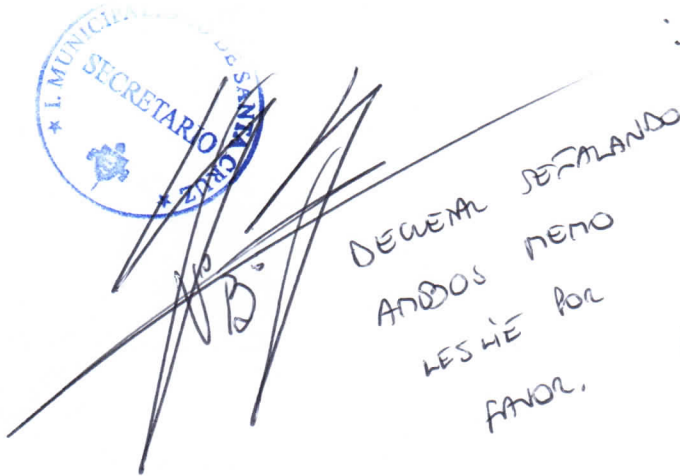 I. MUNICIPALIDAD DE SANTA CRUZ
SECRETARIO
V° B°
DECRETAR SEÑALANDO
AMBOS MEMO
LESLIE POR
FAVOR.